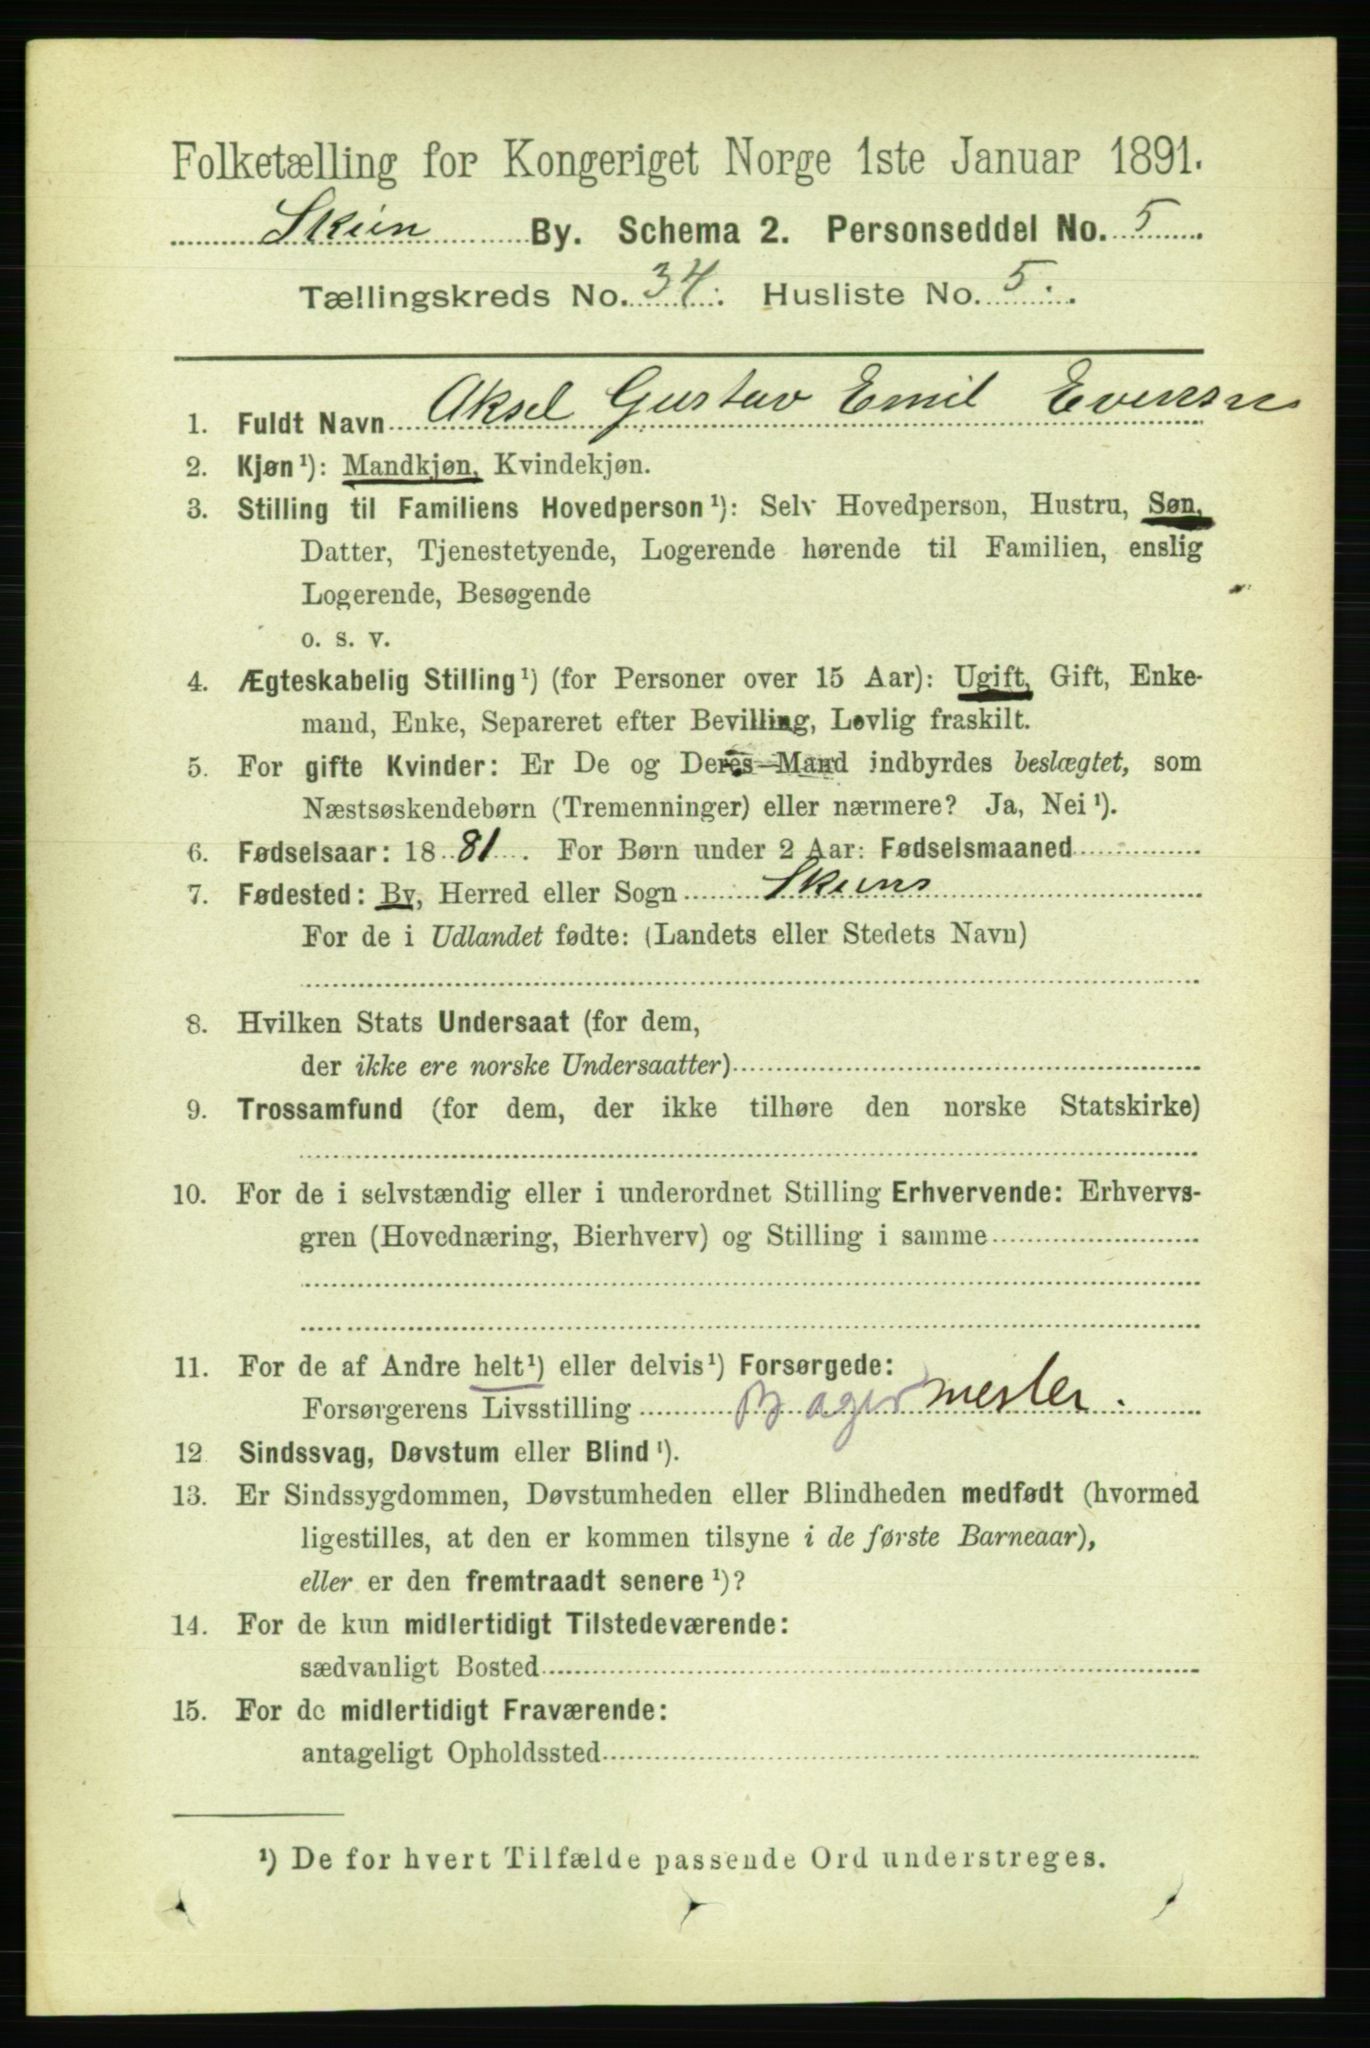 Folketælling for Kongeriget Norge 1ste Januar 1891.
Skien By. Schema 2. Personseddel No. 5
Tællingskreds No. 34. Husliste No. 5.
1. Fuldt Navn Aksel Gustav Emil Evensen
2. Kjøn¹): Mandkjøn, Kvindekjøn.
3. Stilling til Familiens Hovedperson¹): Selv Hovedperson, Hustru, Søn,
Datter, Tjenestetyende, Logerende hørende til Familien, enslig
Logerende, Besøgende
o. s. v.
4. Ægteskabelig Stilling¹) (for Personer over 15 Aar): Ugift, Gift, Enke-
mand, Enke, Separeret efter Bevilling, Løvlig fraskilt.
5. For gifte Kvinder: Er De og Deres Mand indbyrdes beslægtet, som
Næstsøskendebørn (Tremenninger) eller nærmere? Ja, Nei¹).
6. Fødselsaar: 1881. For Børn under 2 Aar: Fødselsmaaned
7. Fødested: By, Herred eller Sogn Skiens
For de i Udlandet fødte: (Landets eller Stedets Navn)
8. Hvilken Stats Undersaat (for dem,
der ikke ere norske Undersaatter)
9. Trossamfund (for dem, der ikke tilhøre den norske Statskirke)
10. For de i selvstændig eller i underordnet Stilling Erhvervende: Erhvervs-
gren (Hovednæring, Bierhverv) og Stilling i samme
11. For de af Andre helt¹) eller delvis¹) Forsørgede:
Forsørgerens Livsstilling Bagermester.
12. Sindssvag, Døvstum eller Blind¹).
13. Er Sindssygdommen, Døvstumheden eller Blindheden medfødt (hvormed
ligestilles, at den er kommen tilsyne i de første Barneaar),
eller er den fremtraadt senere¹)?
14. For de kun midlertidigt Tilstedeværende:
sædvanligt Bosted
15. For de midlertidigt Fraværende:
antageligt Opholdssted
¹) De for hvert Tilfælde passende Ord understreges.